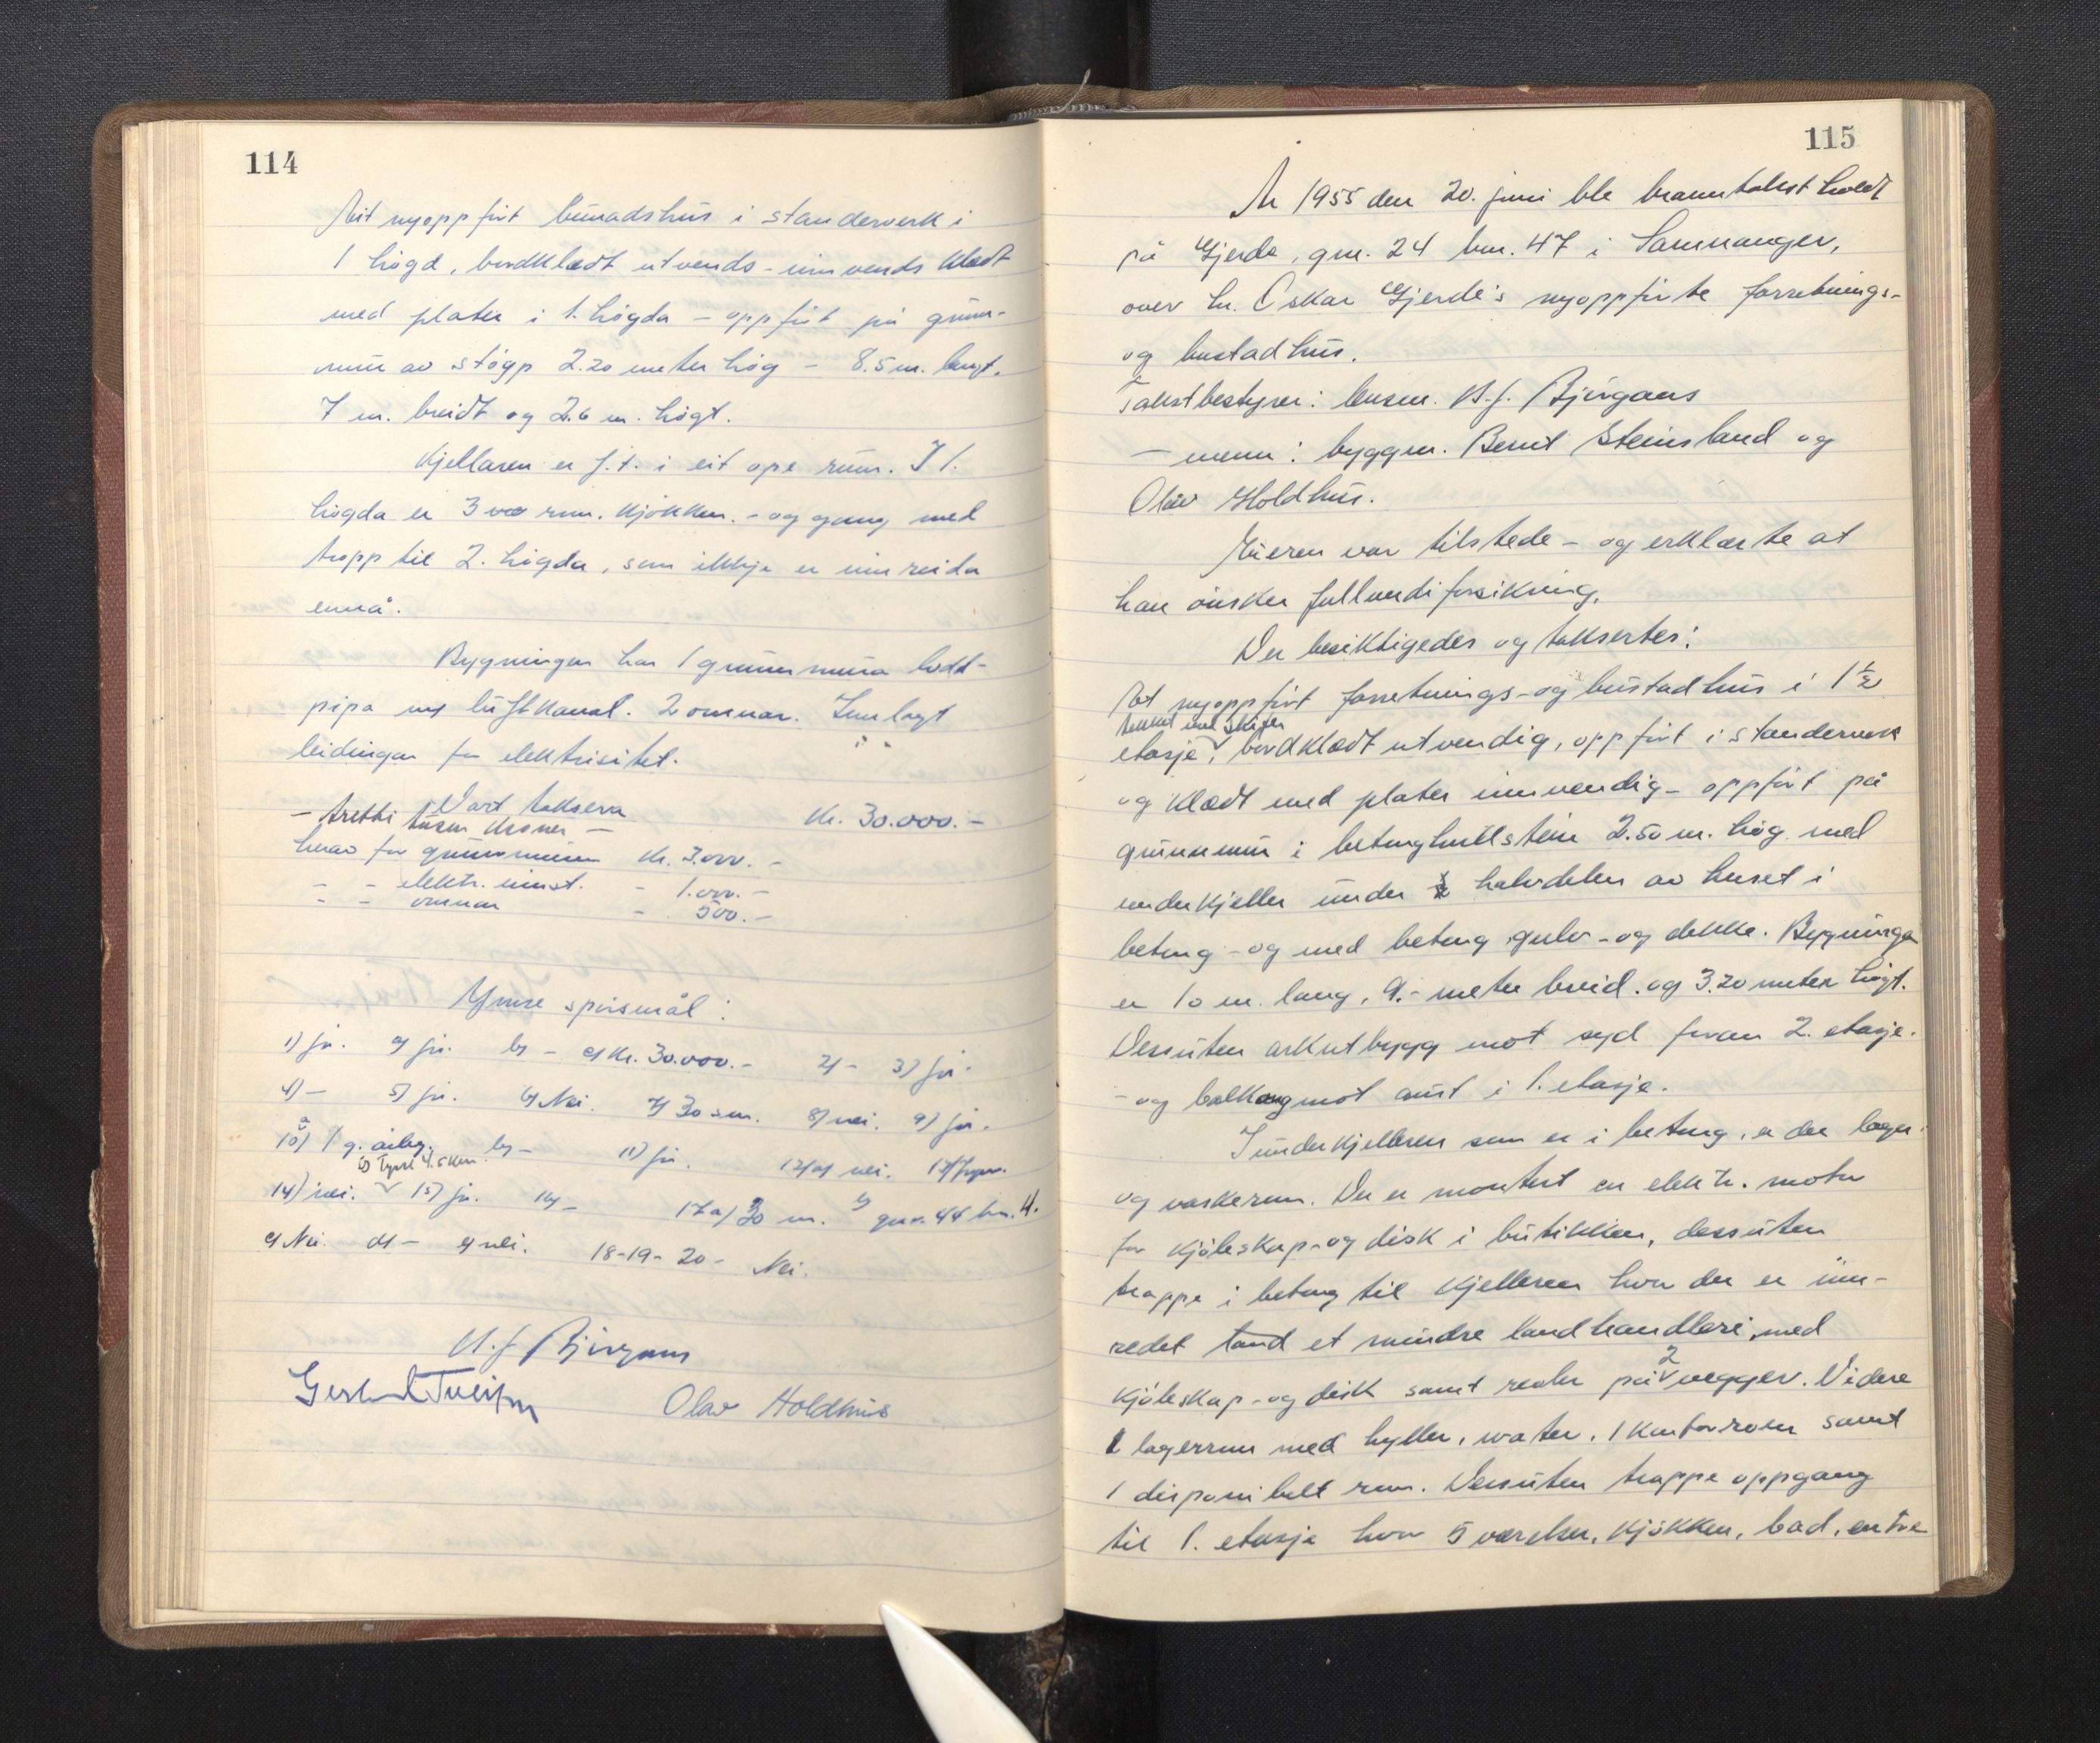 114
Eit nyoppført bunadshus i standerverk i
1 høgd, bordklædt utvends - innvends klædt
med plater i 1. høgda - oppført på grunn-
mur av støyp 2.20 meter høg - 8.5 m. langt.
7 m. breidt og 2.6 m. høgt.
Kjellaren er f.t. i eit ope rum. I 1.
høgda er 3 rum. kjøkken. - og gang med
tropp til 2. høgda, som ikkje er innreida
ennå.
Bygningen har 1 grunnmura
pipa m/ luftkanal. 2 omnar. Innlagt
leidingar for elektrisitet.
Vart taksera Kr. 30.000.-
- tretti tusen kroner -
herav for grunnmuren kr. 3.000.-
- - elektr. innst. - 1.000.-
- - omnar - 500.-
Ymse spørsmål:
1) ja. a) ja. b) - c) Kr. 30.000.- 2) - 3) ja.
4) - 5) ja. 6) Nei. 7) 30 sm. 8) nei. 9) ja.
10) a) 1 g. årleg. b) - 11) ja. 12) a) nei.
14) nei. 15) ja. 16) - 17 a) 30 m. b) gnr. 44 bn. 4.
c) Nei. d) - e) nei. 18-19-20- Nei.
N. J. Bjørgaas
Olav Holdhus
115
År 1955 den 20. juni ble branntakst holdt
på Gjerde, gnr. 24 bnr. 47 i Samnanger,
over hr. Oskar Gjerde's nyoppførte forretnings-
og bustadhus.
Takstbestyrer: lensm. N. J. Bjørgaas
- menn: byggm. Bernt Steinsland og
Olav Holdhus.
Eieren var tilstede - og erklærte at
han ønsker fullverdiforsikring.
Der besiktigedes og taksertes:
Et nyoppført forretnings- og bustadhus i 1 1/2
tekket med skifer
etasje, bordklædt utvendig, oppført i standerverk
og klædt med plater innvendig - oppført på
grunnmur i betonghullstein 2.50 m. høg med
underkjeller under halvdelen av huset i
betong - og med betong gulv - og dekke. Bygningen
er 10 m. lang, 9.- meter breid. og 3.20 meter høgt.
Dessuten arkutbygg mot syd foran 2. etasje.
- og balkong mot aust i 1. etasje.
I underkjelleren som er i betong, er der lager
og vaskerum. Der er montert en elektr. motor
for kjøleskap- og disk i butikken, dessuten
trappe i betong til kjelleren hvor der er inn-
redet et mindre landhandleri, med
kjøleskap- og disk samt reoler på 2 vegger. Videre
1 lagerrum med hyller, water, 1 kontorrom samt
1 disponibelt rum. Dessuten trappe oppgang
til 1. etasje hvor 5 værelser, kjøkken, bad, entre